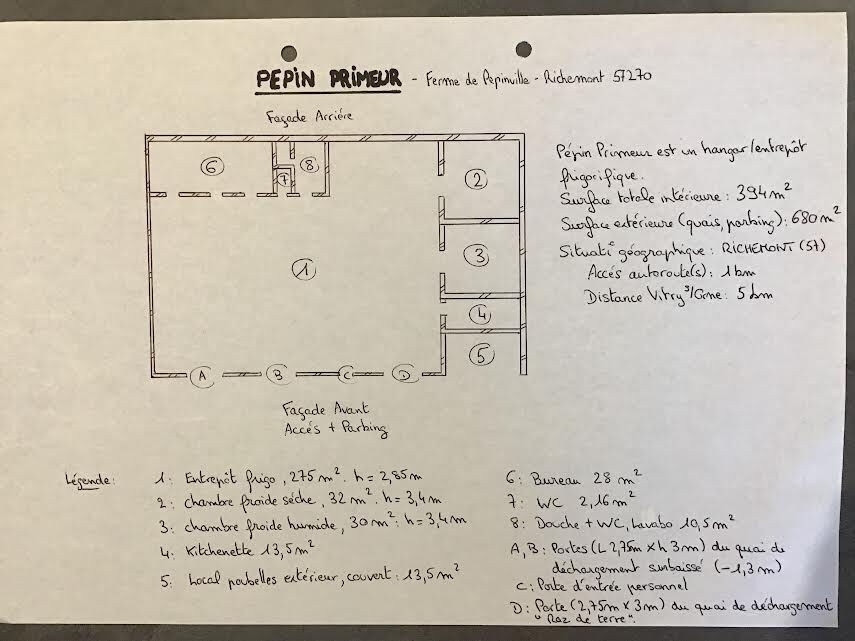 PEPIN PRIMEUR - Ferme de Pépinville - Richemont 57270
Façade Arriére
6
7
8
2
1
3
4
5
A
B
C
D
Façade Avant
Accés + Parking
Pépin Primeur est un hangar/entrepôt
frigorifique.
Surface totale intérieure : 394 m²
Surface extérieure (quais, parking) : 680 m²
Situat° géographique : RICHEMONT (57)
Accés autoroute(s) : 1 km
Distance Vitry s/Orne : 5 km
Légende :
1 : Entrepôt frigo, 275 m². h = 2,85 m
2 : chambre froide séche, 32 m². h = 3,4 m
3 : chambre froide humide, 30 m² : h = 3,4 m
4 : Kitchenette 13,5 m²
5 : Local poubelles extérieur, couvert : 13,5 m²
6 : Bureau 28 m²
7 : WC 2,16 m²
8 : Douche + WC, Lavabo 10,5 m²
A, B : Portes (L 2,75m x h 3m) du quai de
déchargement surbaissé (-1,3 m)
C : Porte d'entrée personnel
D : Porte (2,75m x 3m) du quai de déchargement
"Raz de terre".